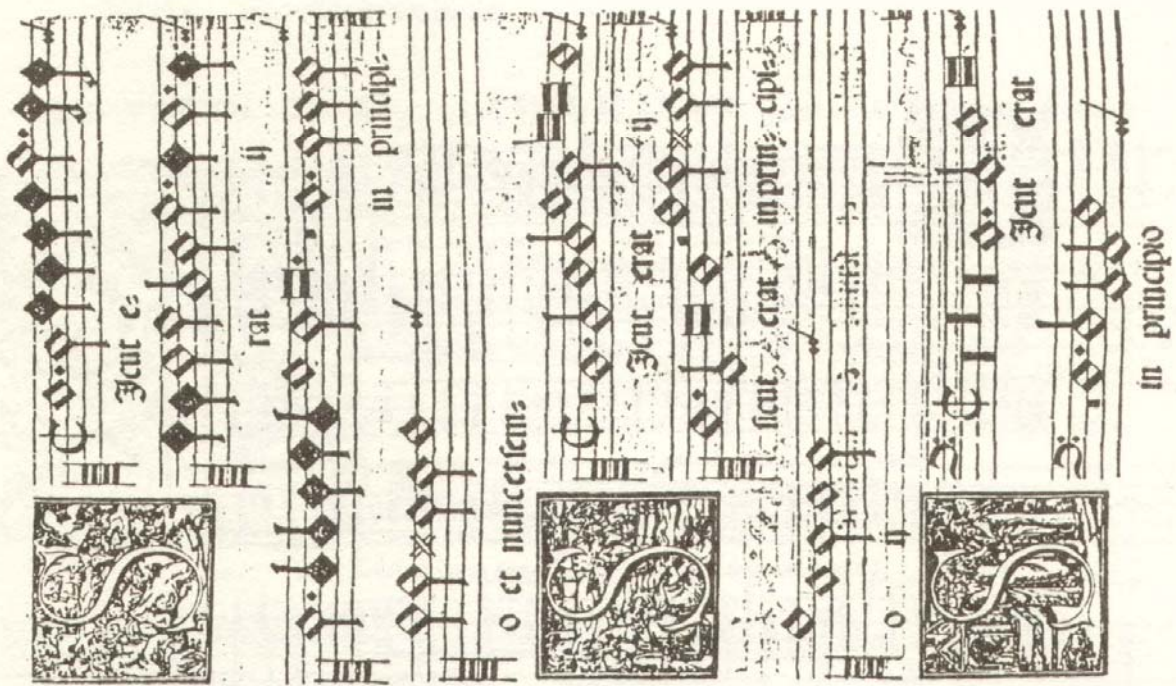 SIcut e=
rat ij
in principi=
o et nunc et sem=
SIcut erat ij
sicut erat in prin= cipi=
o ij
SIcut erat
in principio